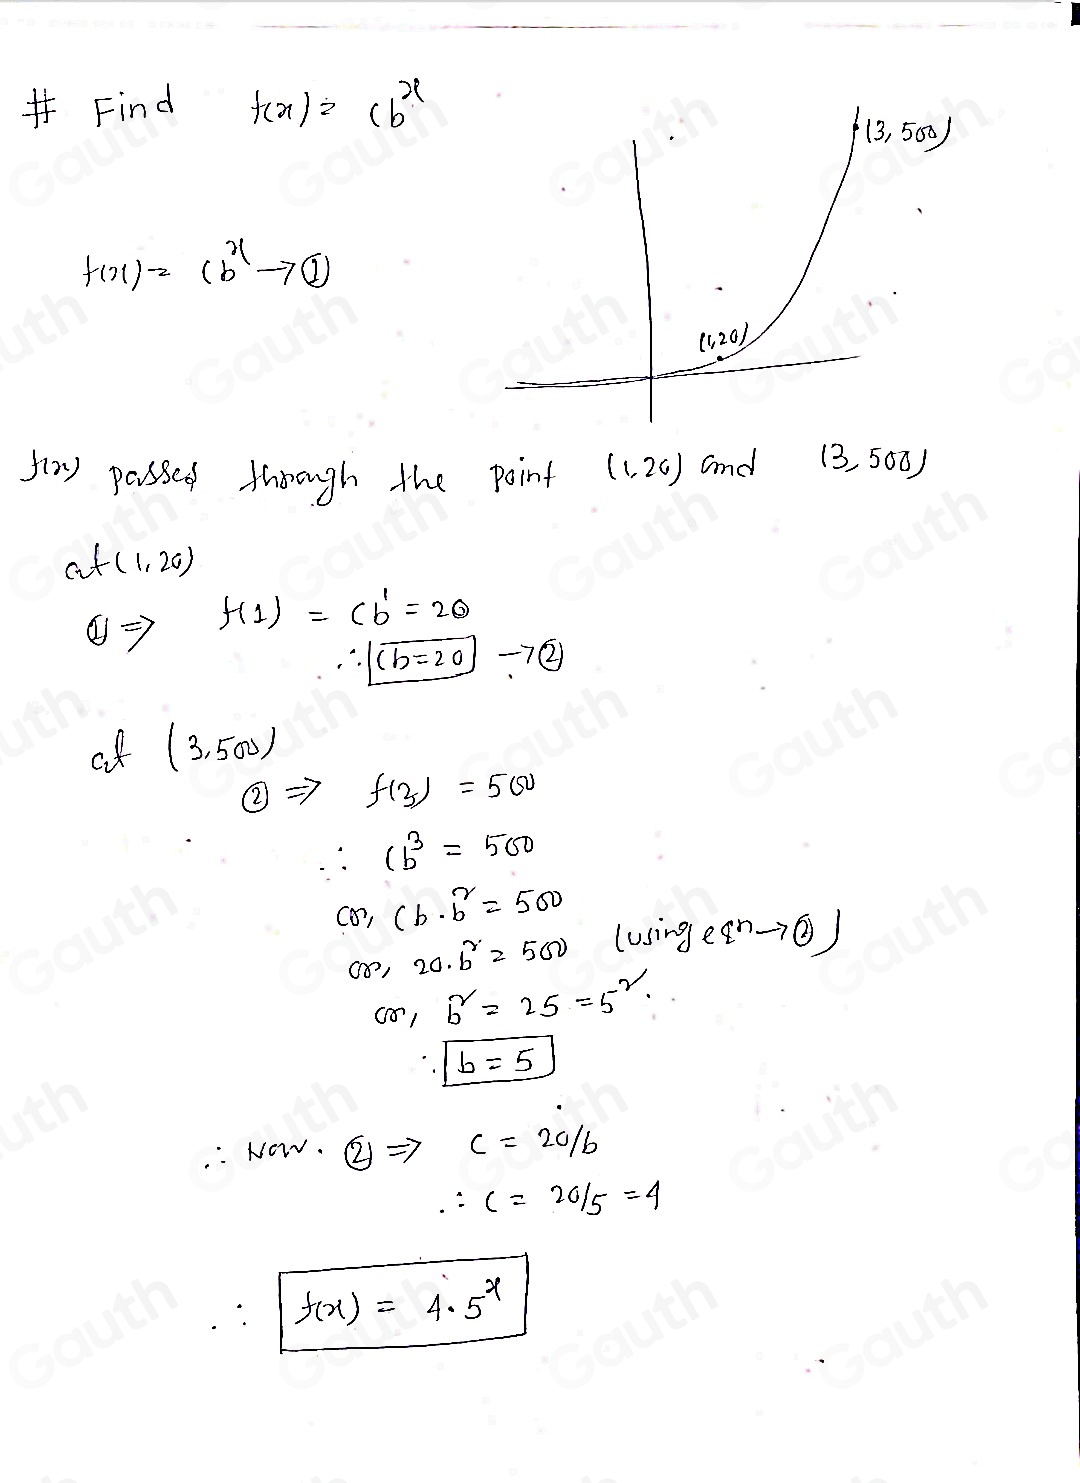 # Find f(x) = Cb^x
(3, 500)
f(x) = Cb^x → ①
(1, 20)
f(x) passes through the point (1, 20) and (3, 500)
at (1, 20)
① ⇒ f(1) = Cb^1 = 20
∴ Cb = 20 → ②
at (3, 500)
② ⇒ f(3) = 500
∴ Cb^3 = 500
or, Cb · b^2 = 500
or, 20 · b^2 = 500 (using eqn → ②)
or, b^2 = 25 = 5^2.
∴ b = 5
∴ Now. ② ⇒ C = 20/b
∴ C = 20/5 = 4
∴ f(x) = 4 · 5^x
Gauth